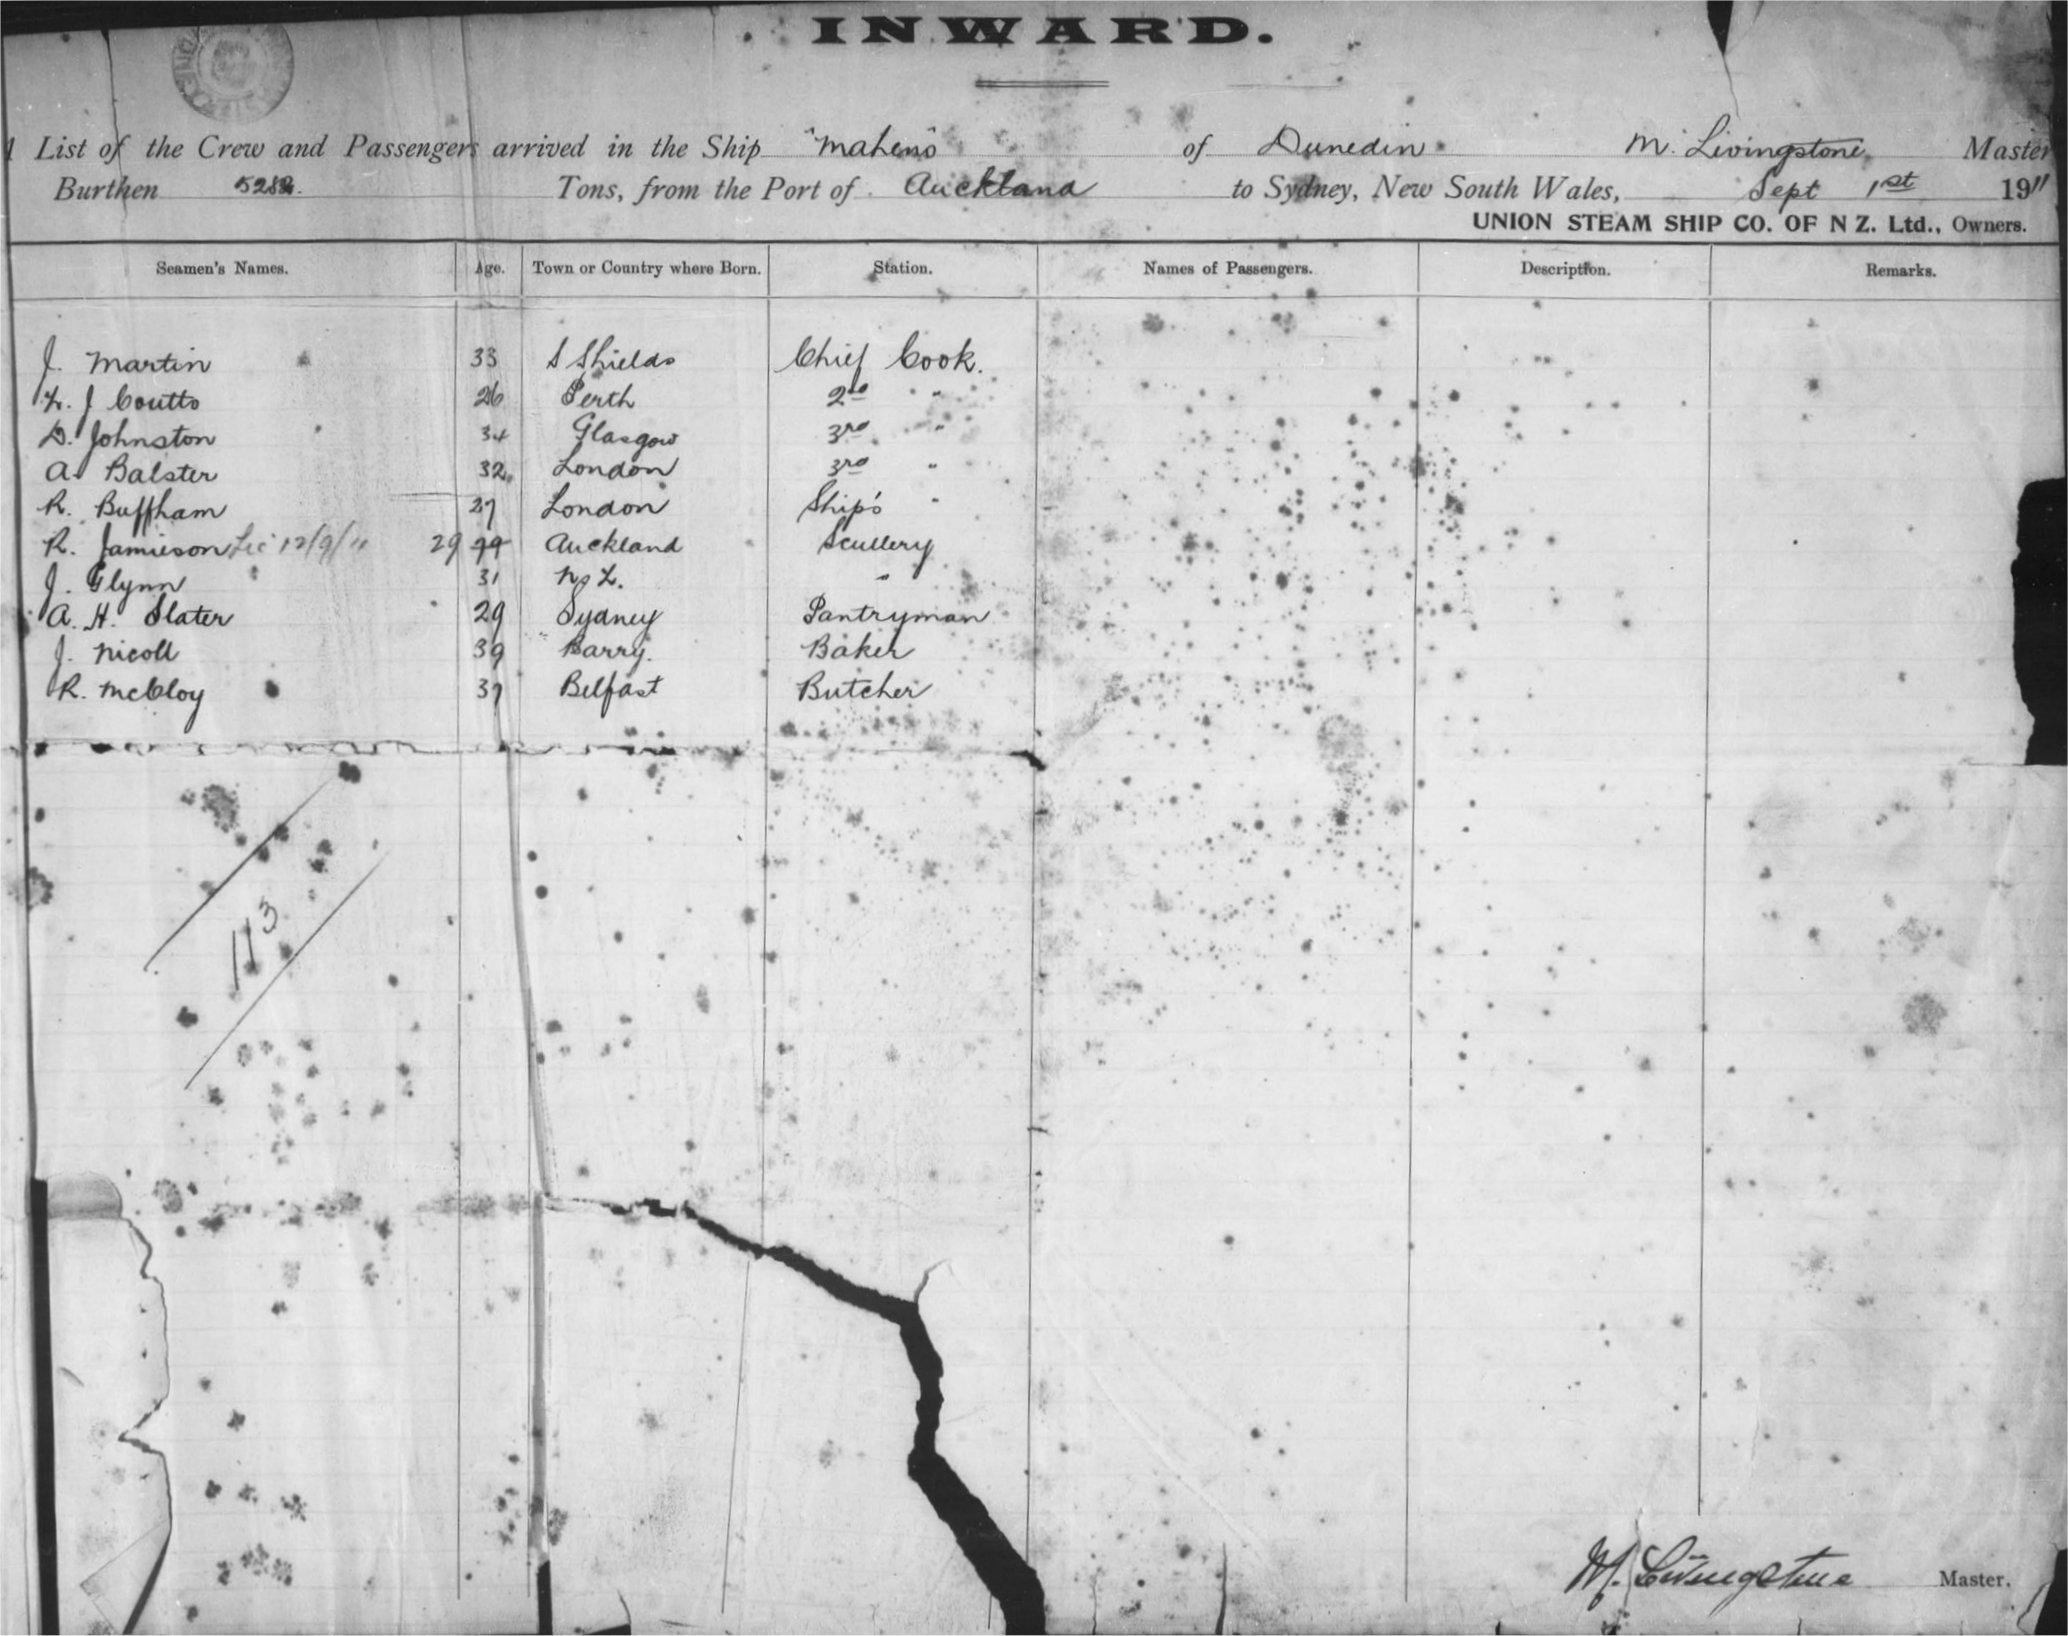 INWARD.
List of the Crew and Passengers arrived in the Ship "Maheno" of Dunedin M. Livingstone Master
Burthen 5282 Tons, from the Port of Auckland to Sydney, New South Wales, Sept 1st 1911
UNION STEAM SHIP CO. OF N Z. Ltd., Owners.
Seamen's Names. Age. Town or Country where Born. Station. Names of Passengers. Description. Remarks.
J. Martin 33 S Shields Chief Cook.
J Coutts 26 Perth 2nd "
D. Johnston 34 Glasgow 3rd "
A Balster 32 London 3rd "
R. Buffham 27 London Ship's "
R. Jamieson 12/9/11 29 Auckland Scullery
J. Glynn 31 N Z. "
A. H. Slater 29 Sydney Pantryman
J. Nicoll 39 Barry. Baker
R. McCloy 37 Belfast Butcher
113
M. Livingstone Master.